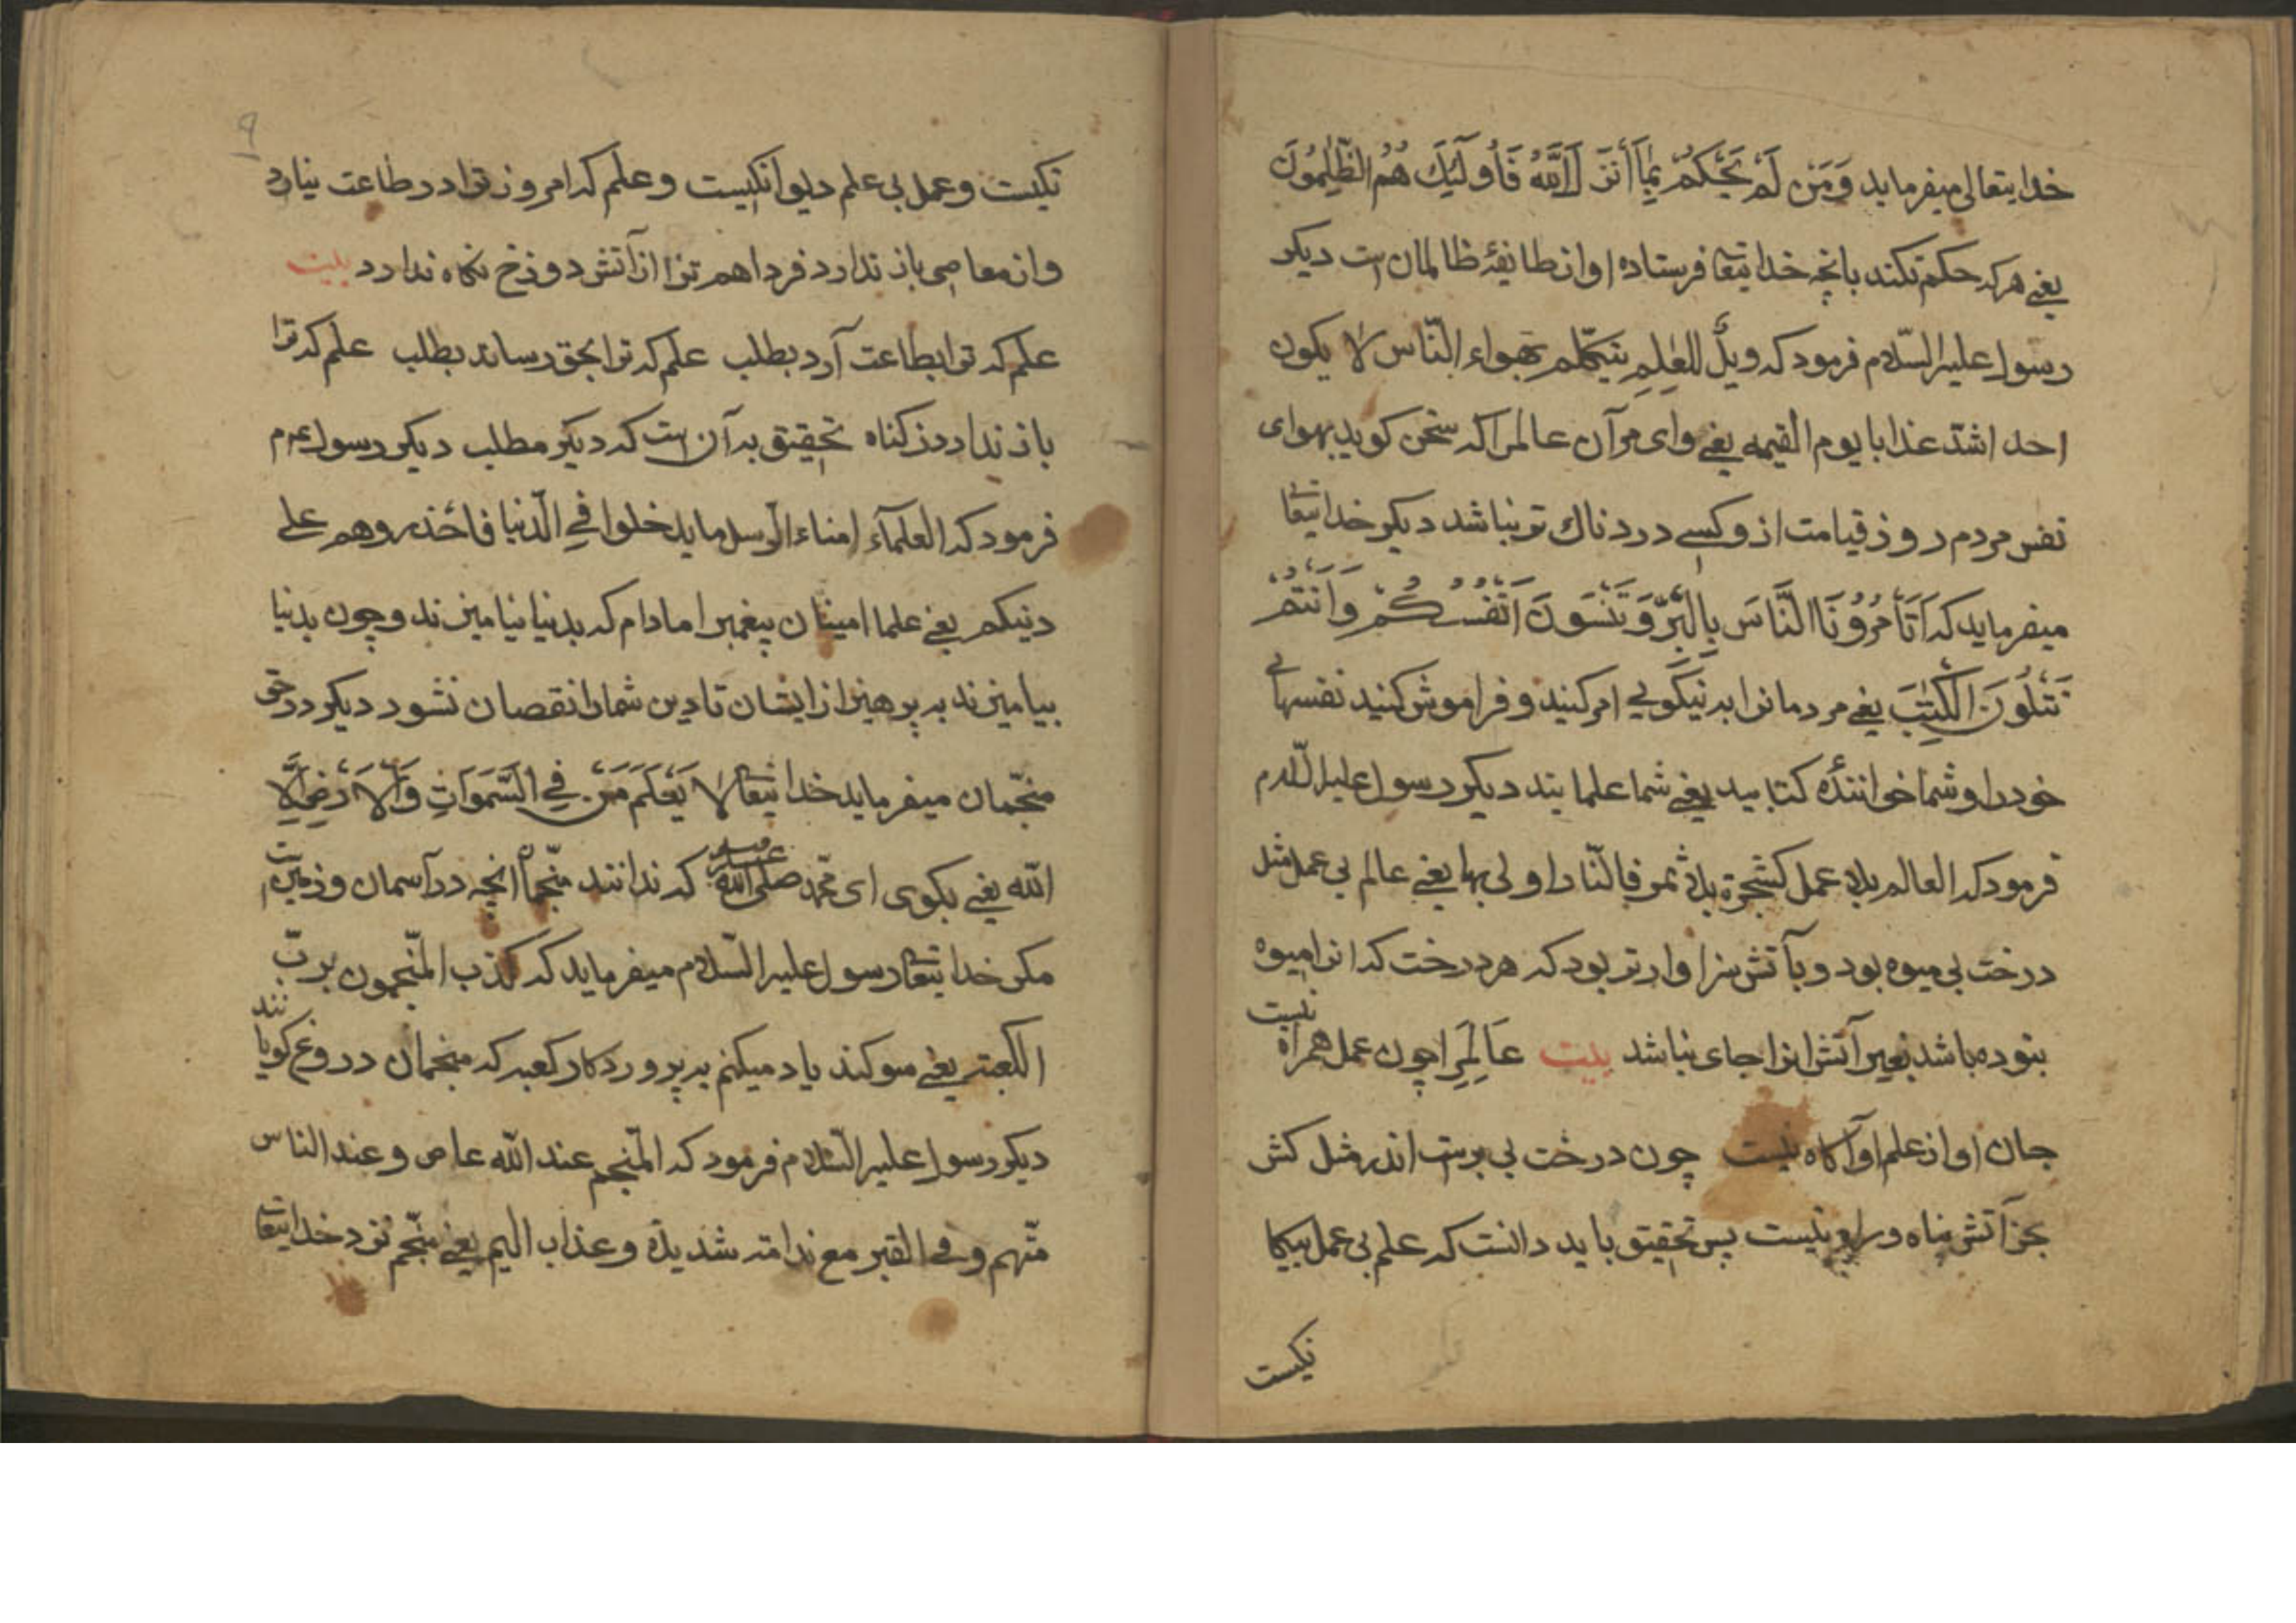 خدایتعالی میفرماید وَمَنْ لَمْ یَحْکُمْ بِمَا أَنْزَلَ اللَّهُ فَأُولَٰئِكَ هُمُ الظَّٰلِمُونَ
یعنی هرکه حکم نکند بانچه خدایتعا فرستاده او از طایفهٔ ظالمان است دیکر
رسول علیه السّلام فرمود که ویلٌ للعٰلِمِ یتکلّم بهواء النّاس لا یکون
احد اشدّ عذابا یوم القیمه یعنی وای مر آن عالم را که سخن کوید بهوای
نفس مردم روز قیامت ازو کسی دردناك تر نباشد دیکر خدایتعا
میفرماید که اَتَأْمُرُونَ النَّاسَ بِالْبِرِّ وَتَنْسَوْنَ اَنْفُسَکُمْ وَاَنْتُمْ
تَتْلُونَ الْکِتٰبَ یعنی مردمانرا به نیکویی امر کنید و فراموش کنید نفسهای
خود را و شما خوانندهٔ کتابید یعنی شما علمایند دیکر رسول علیه السّلام
فرمود که العالم بلا عمل کشجرة بلا ثمر فالنّار اولی بها یعنی عالم بی عمل مثل
درخت بی میوه بود و بآتش سزاوارتر بود که هر درخت که انرا میوه
بنوده باشد بغیر آتش انرا جای نباشد بیت عَالِمِرا چون عمل همراه نیست
جان او از علم او آکاه نیست چون درخت بی برست اندر مثل کش
بجز آتش پناه و راه نیست پس تحقیق باید دانست که علم بی عمل بیکا
نکیست
نکیست و عمل بی علم دیوانکیست و علم که امروز ترا در طاعت نیارد
و از معاصی باز ندارد فردا هم ترا از آتش دوزخ نکاه ندارد بیت
علم که ترا بطاعت آرد بطلب علم که ترا بحق رساند بطلب علم که ترا
باز ندارد ز کناه تحقیق بدآن است که دیکر مطلب دیکر رسول عم
فرمود که العلمآء امناء الرّسل ما یدخلوا فی الدّنیا فاحذروهم علی
دینکم یعنی علما امینان پیغمبر اما دام که بدنیا نیامیزند و چون بدنیا
بیامیزند به پرهیز از ایشان تا دین شما را نقصان نشود دیکر در حق
منجّمان میفرماید خدایتعا لَا یَعْلَمُ مَنْ فِی السَّمٰوَاتِ وَالْاَرْضِ اِلَّا
اللّه یعنی بکوی ای محمّد صلی الله علیه که ندانند منجّما انچه در آسمان و زمین است
مکر خدایتعا رسول علیه السّلام میفرماید که کذب المنّجمون بربّ
الکعبته یعنی سوکند یاد میکنم به پروردکار کعبه که منجمان دروغ کویانند
دیکر رسول علیه السّلام فرمود که المنّجم عند اللّه عاص و عند الناس
متّهم و فی القبر مع ندامته شدیدة و عذاب الیم یعنی منّجم نزد خدایتعا